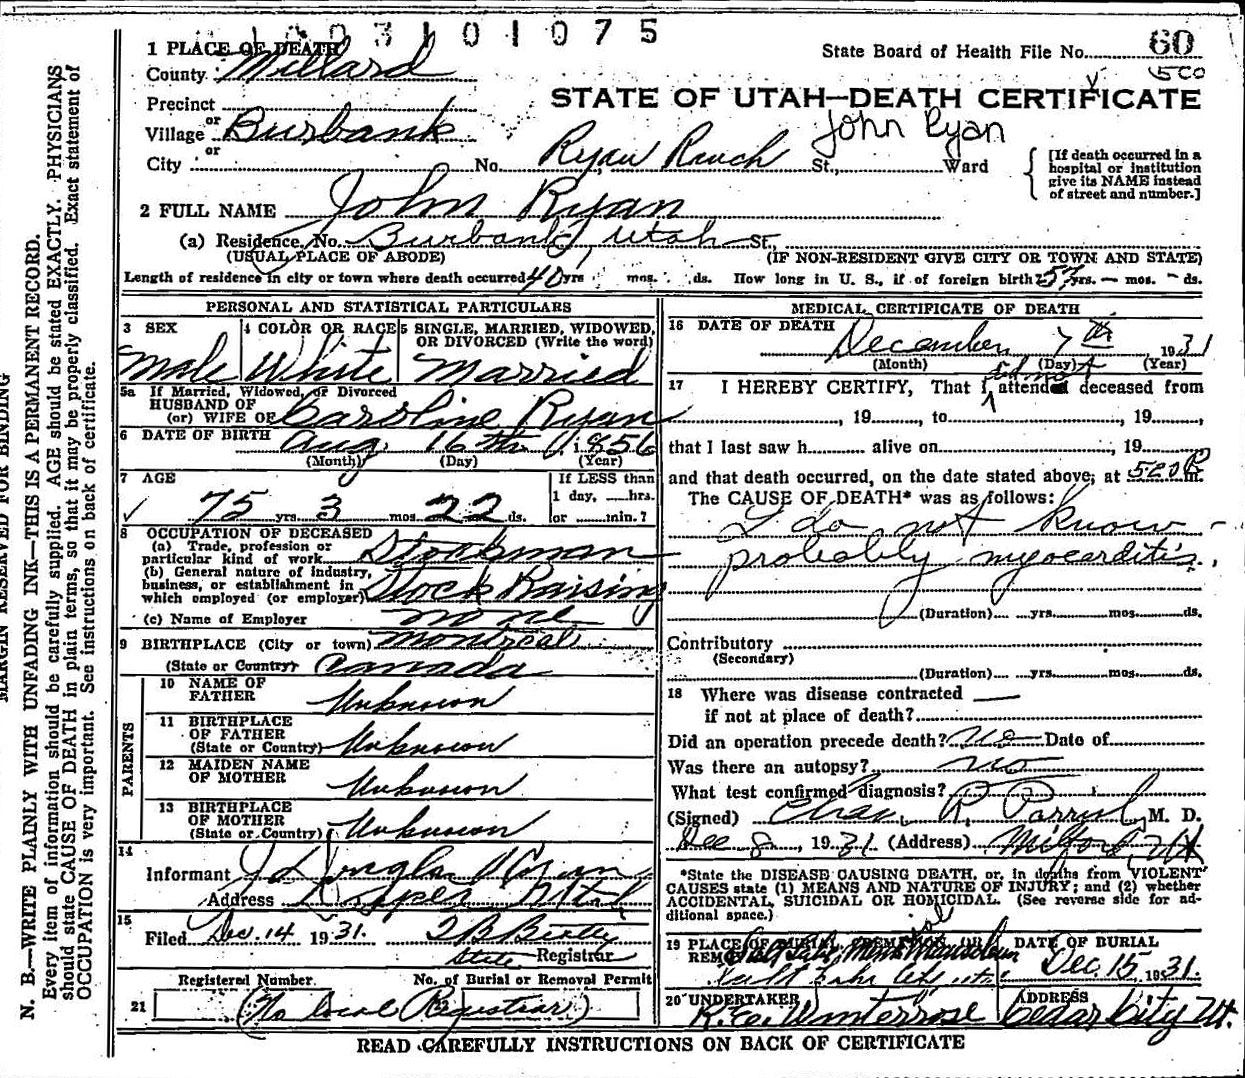 3 1 0 1 0 7 5
1 PLACE OF DEATH
State Board of Health File No. 60
County Millard
500
STATE OF UTAH—DEATH CERTIFICATE
Precinct
or
Village Burbank
John Ryan
or
City No. Ryan Ranch St., Ward
[If death occurred in a hospital or institution give its NAME instead of street and number.]
2 FULL NAME John Ryan
(a) Residence. No. Burbank, Utah St.,
(USUAL PLACE OF ABODE) (IF NON-RESIDENT GIVE CITY OR TOWN AND STATE)
Length of residence in city or town where death occurred 40 yrs. mos. ds. How long in U. S., if of foreign birth? 57 yrs. — mos. — ds.
PERSONAL AND STATISTICAL PARTICULARS
3 SEX
Male
4 COLOR OR RACE
White
5 SINGLE, MARRIED, WIDOWED,
OR DIVORCED (Write the word)
Married
5a If Married, Widowed, or Divorced
HUSBAND OF
(or) WIFE OF Caroline Ryan
6 DATE OF BIRTH Aug 16th 1856
(Month) (Day) (Year)
7 AGE
75 yrs. 3 mos. 22 ds.
If LESS than
1 day, hrs.
or min.?
8 OCCUPATION OF DECEASED
(a) Trade, profession or
particular kind of work Stockman
(b) General nature of industry,
business, or establishment in
which employed (or employer) Stock Raising
(c) Name of Employer none
9 BIRTHPLACE (City or town) Montreal
(State or Country) Canada
PARENTS
10 NAME OF
FATHER Unknown
11 BIRTHPLACE
OF FATHER
(State or Country) Unknown
12 MAIDEN NAME
OF MOTHER Unknown
13 BIRTHPLACE
OF MOTHER
(State or Country) Unknown
14
Informant
Address Utah
15
Filed Dec. 14 1931.
State Registrar
Registered Number No. of Burial or Removal Permit
21 (No local Registrar)
MEDICAL CERTIFICATE OF DEATH
16 DATE OF DEATH December 7th 1931
(Month) (Day) (Year)
17 I HEREBY CERTIFY, That I did not attend deceased from
, 19 , to , 19 ,
that I last saw h alive on , 19
and that death occurred, on the date stated above, at 520 P m.
The CAUSE OF DEATH* was as follows:
I do not know
probably myocarditis.
(Duration) yrs. mos. ds.
Contributory
(Secondary)
(Duration) yrs. mos. ds.
18 Where was disease contracted —
if not at place of death?
Did an operation precede death? No Date of
Was there an autopsy? no
What test confirmed diagnosis?
(Signed) Chas. R. Parrish, M. D.
Dec 8, 1931 (Address) Milford, Ut
*State the DISEASE CAUSING DEATH, or, in deaths from VIOLENT
CAUSES state (1) MEANS AND NATURE OF INJURY; and (2) whether
ACCIDENTAL, SUICIDAL OR HOMICIDAL. (See reverse side for additional space.)
19 PLACE OF BURIAL, CREMATION, OR REMOVAL Salt Lake Mausoleum
Salt Lake City
DATE OF BURIAL
Dec. 15, 1931.
20 UNDERTAKER
R. E. Winterrose
ADDRESS
Cedar City Ut.
READ CAREFULLY INSTRUCTIONS ON BACK OF CERTIFICATE
MARGIN RESERVED FOR BINDING
N. B.—WRITE PLAINLY WITH UNFADING INK—THIS IS A PERMANENT RECORD.
Every item of information should be carefully supplied. AGE should be stated EXACTLY. PHYSICIANS
should state CAUSE OF DEATH in plain terms, so that it may be properly classified. Exact statement of
OCCUPATION is very important. See instructions on back of certificate.